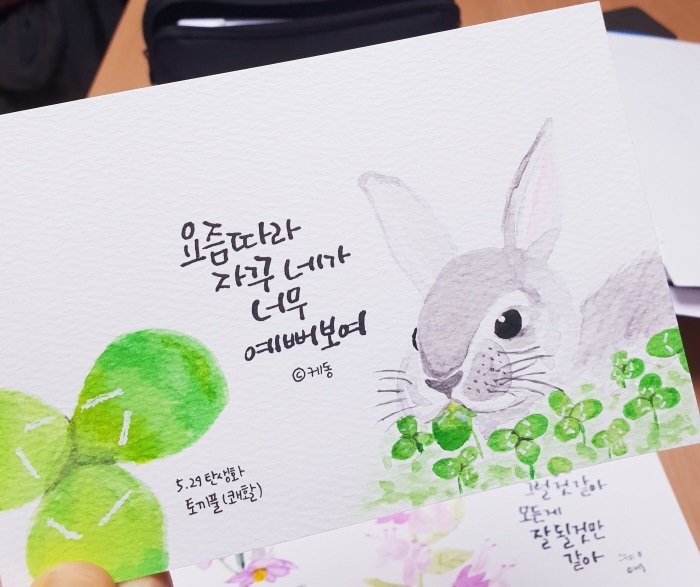 요즘따라
자꾸 네가
너무
예뻐보여
ⓒ케동
5.29 탄생화
토끼풀(쾌활)
그럴것같아
모든게
잘 될것만
같아